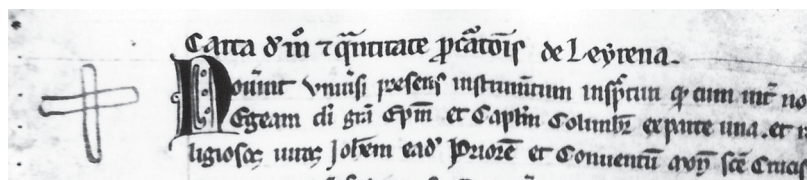 Carta d' m̊ ⁊ q̃ntitate p̃cat̃ois de Leyrena.
Nou̾int Vniu̾si presens instrum̃tum insp̃cturi q̃ cum int̾
Egeam di gr̃a Ep̃m et Capl̃m Colimbr̃ ex parte una. et
ligiosos uiros Joh̃em ead' Priorẽ et Conuentũ scẽ Crucis